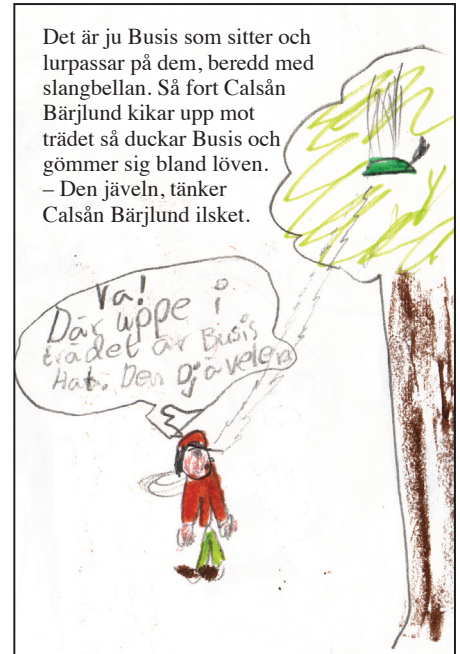 Det är ju Busis som sitter och
lurpassar på dem, beredd med
slangbellan. Så fort Calsån
Bärjlund kikar upp mot
trädet så duckar Busis och
gömmer sig bland löven.
– Den jäveln, tänker
Calsån Bärjlund ilsket.
Va!
Där uppe i
trädet är Busis
Hat. Den Djävelen